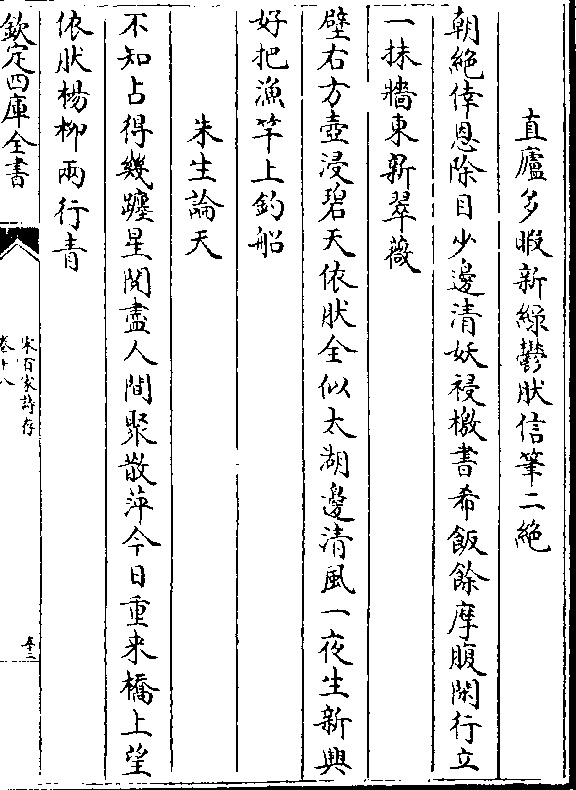 直廬多暇新緑鬱然信筆二絶
朝絶倖恩除目少邊清妖祲檄書希飯餘摩腹閑行立
一抹牆東新翠薇
壁右方壺浸碧天依然全似太湖邊清風一夜生新興
好把漁竿上釣船
朱生論天
不知占得幾躔星閲盡人間聚散萍今日重来橋上望
依然楊柳兩行青
欽定四庫全書
宋百家詩存
卷十八